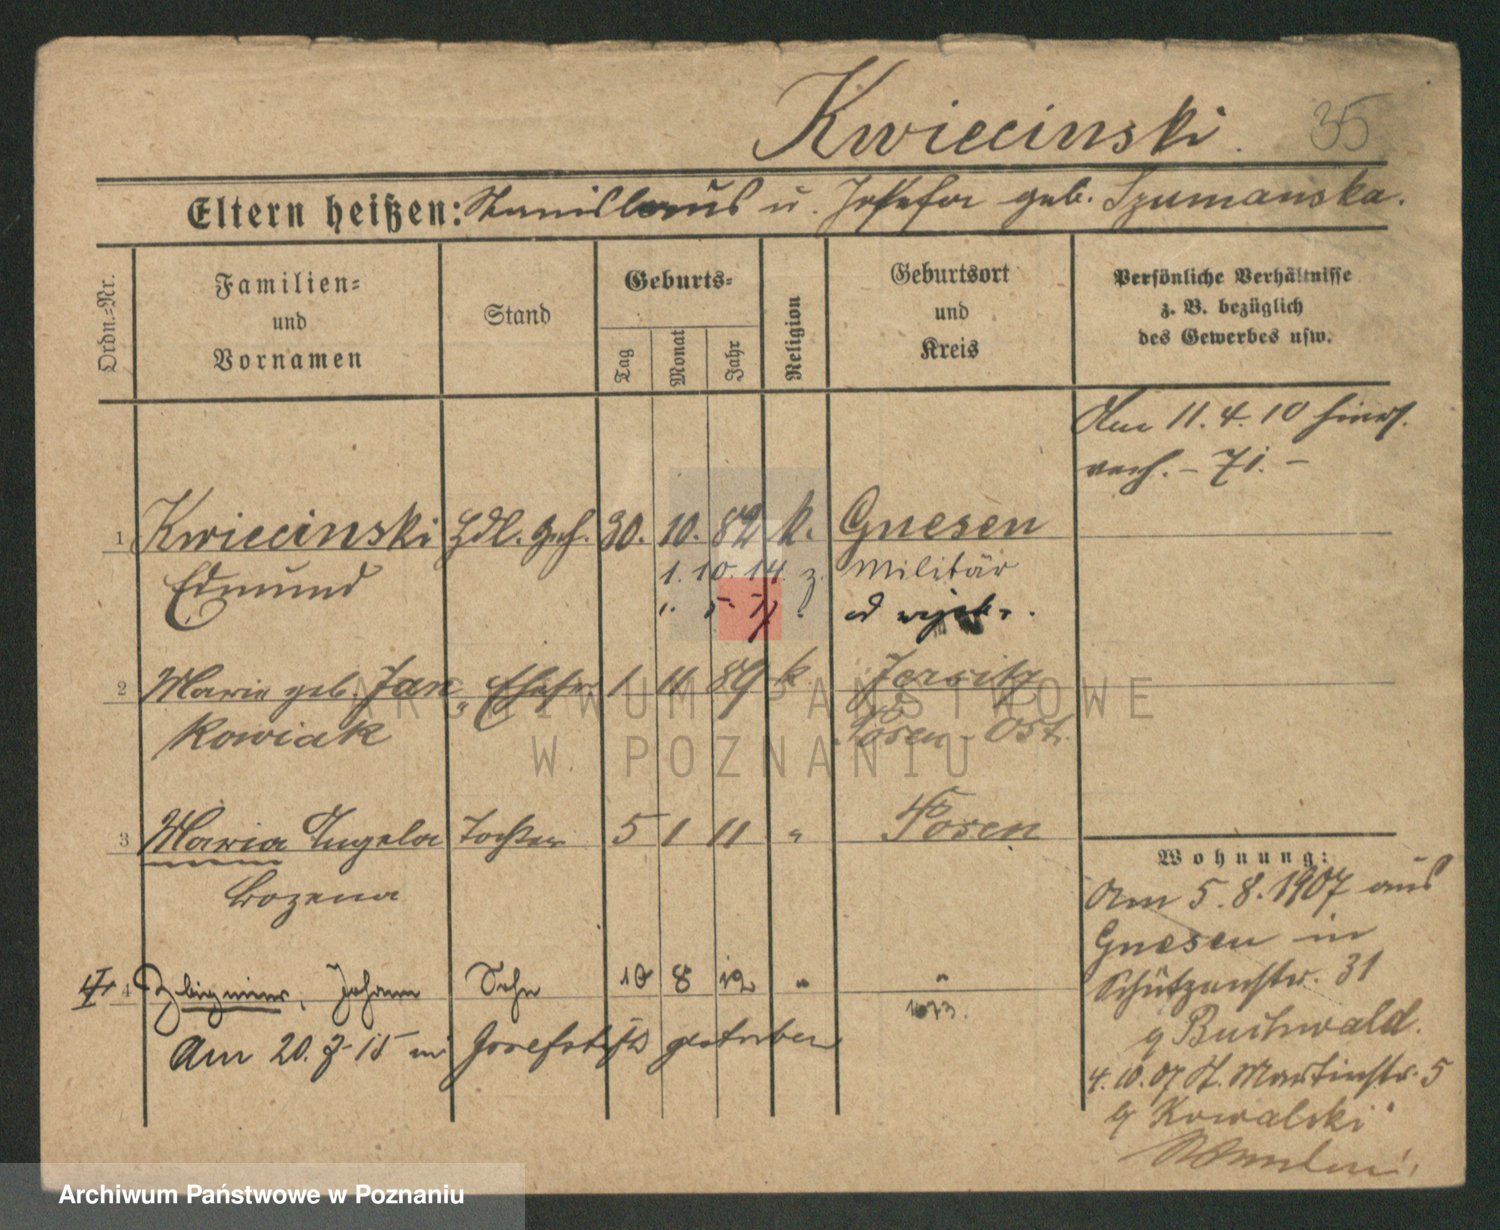 Kwiecinski. 35
Eltern heißen: Stanislaus u. Josefa geb. Szumanska.
Ordn.-Nr.
Familien-
und
Vornamen
Stand
Geburts-
Tag
Monat
Jahr
Religion
Geburtsort
und
Kreis
Persönliche Verhältnisse
z. B. bezüglich
des Gewerbes usw.
Am 11. 4. 10
1 Kwiecinski Hdl. Geh. 30. 10. 82 k. Gnesen
Edmund 1. 10. 14. z. Militär
2 Marie geb. Jan Ehefr. 1 11 89 k Jersitz
kowiak Posen-Ost.
3 Maria Angela Tochter 5 1 11 " Posen
Bozena
4 Zbigniew, Johann Sohn 10 8 12 " "
Am 20. 15 in Josefstift gestorben
Wohnung:
Am 5. 8. 1907 aus
Gnesen in
Schützenstr. 31
Buchwald.
4. 10. 07 St. Martinstr. 5
Kowalski
ARCHIWUM PAŃSTWOWE
W POZNANIU
Archiwum Państwowe w Poznaniu